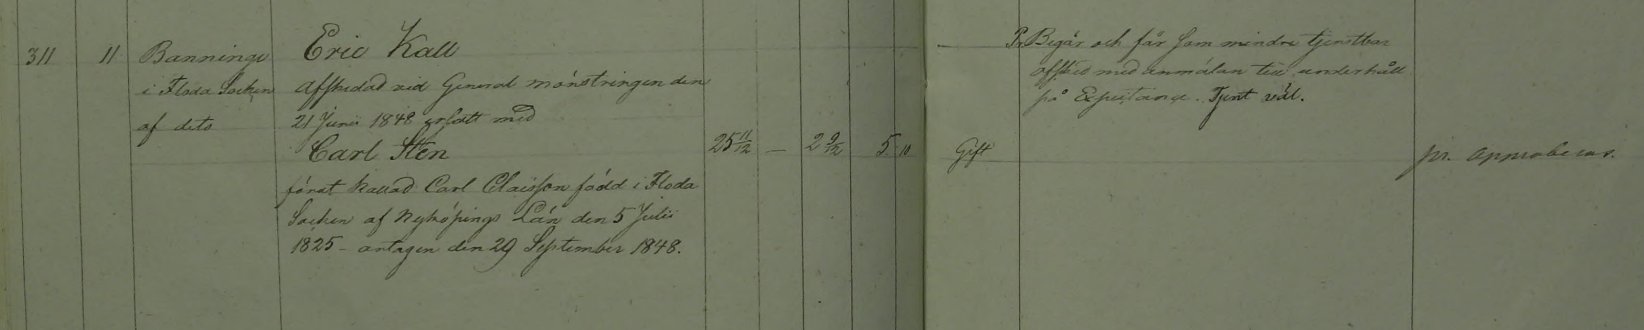 311 11 Banninge Eric Kall Pr Begär och får som mindre tjenstbar
i Floda Socken Afskedad vid General mönstringen den afsked med anmälan till underhåll
af dito 21 Junii 1848 ersatt med på Expectance. Tjent väl.
Carl Sten 25 11/12 — 2 9/12 5 10 Gift pr. approberas.
förut kallad Carl Claësson född i Floda
Socken af Nyköpings Län den 5 Julii
1825 – antagen den 29 September 1848.